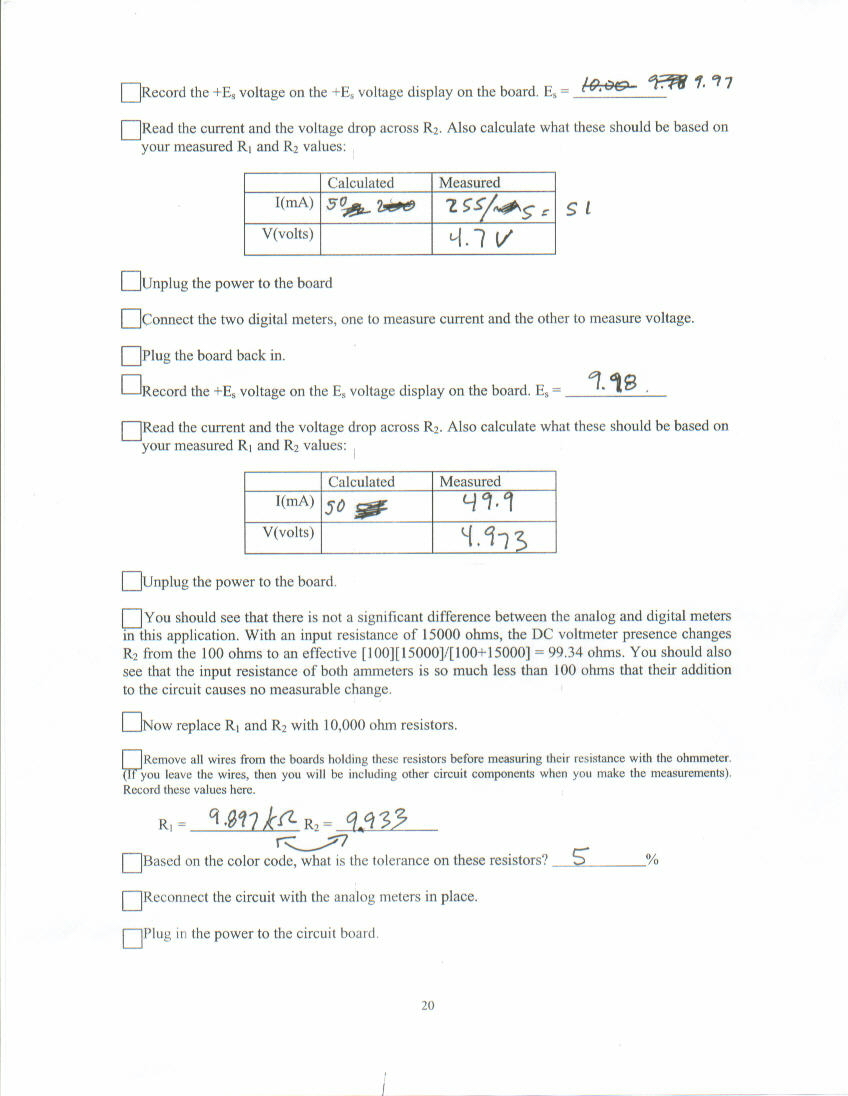 Record the +Es voltage on the +Es voltage display on the board. Es = 10.00 9.98 9.97
Read the current and the voltage drop across R2. Also calculate what these should be based on
your measured R1 and R2 values:
Calculated Measured
I(mA) 50 255/5 = 51
V(volts) 4.7 V
Unplug the power to the board
Connect the two digital meters, one to measure current and the other to measure voltage.
Plug the board back in.
Record the +Es voltage on the Es voltage display on the board. Es = 9.98
Read the current and the voltage drop across R2. Also calculate what these should be based on
your measured R1 and R2 values:
Calculated Measured
I(mA) 50 49.9
V(volts) 4.973
Unplug the power to the board.
You should see that there is not a significant difference between the analog and digital meters
in this application. With an input resistance of 15000 ohms, the DC voltmeter presence changes
R2 from the 100 ohms to an effective [100][15000]/[100+15000] = 99.34 ohms. You should also
see that the input resistance of both ammeters is so much less than 100 ohms that their addition
to the circuit causes no measurable change.
Now replace R1 and R2 with 10,000 ohm resistors.
Remove all wires from the boards holding these resistors before measuring their resistance with the ohmmeter.
(If you leave the wires, then you will be including other circuit components when you make the measurements).
Record these values here.
R1 = 9.897 kΩ R2 = 9.933
Based on the color code, what is the tolerance on these resistors? 5 %
Reconnect the circuit with the analog meters in place.
Plug in the power to the circuit board.
20